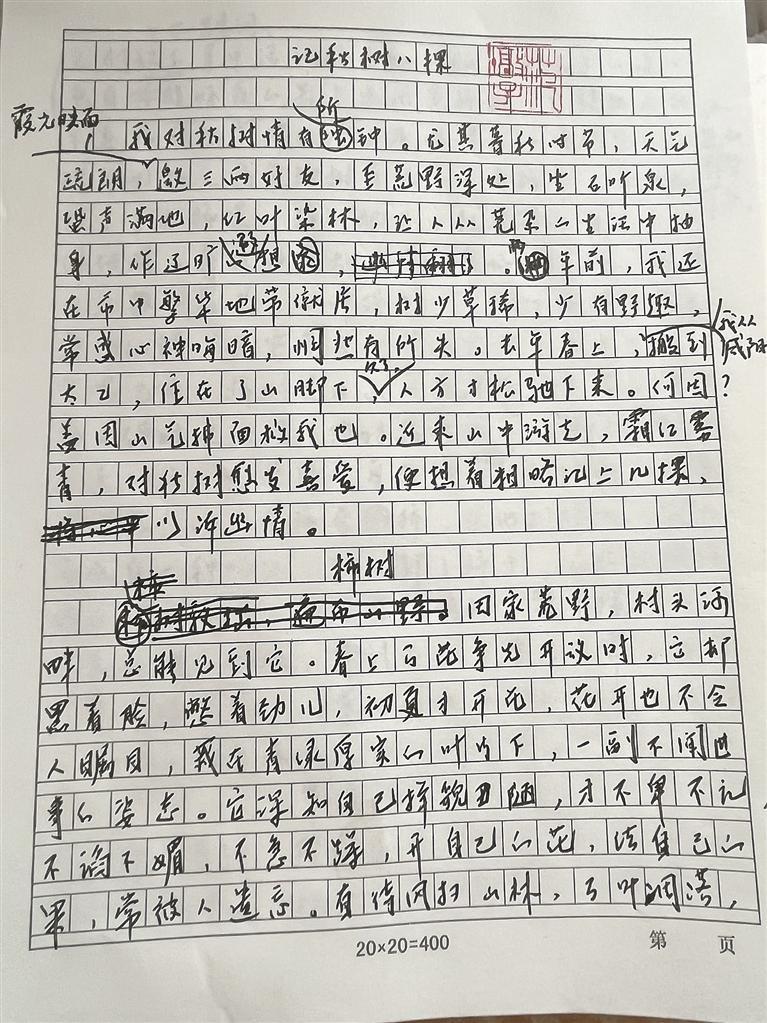 记秋树八棵
所
霞光映面，
我对秋树情有钟。尤其暮秋时节，天光
疏朗，邀三两好友，至荒野深处，坐石听泉，
蛩声满地，红叶染林，让人从芜杂的生活中抽
身，作辽旷想，。两年前，我还
在市中繁华地带做店，树少草稀，少有野趣，
常感心神晦暗，惘然有所失。去年春上，我从咸阳搬到
太乙，住在了山脚下，人方才松驰下来。何因？
盖因山气拂面救我也。近来山中游走，霜红雾
青，对秋树愈发喜爱，便想着粗略记上几棵，
以诉幽情。
柿树
田家荒野，村头河
畔，总能见到它。春上百花争先开放时，它却
黑着脸，憋着劲儿，初夏才开花，花开也不令
人瞩目，藏在青绿厚实的叶片下，一副不闻世
事的姿态。它深知自己择貌丑陋，才不卑不亢，
不谄不媚，不急不躁，开自己的花，结自己的
果，常被人遗忘。直待风扫山林，万叶凋落，
20×20=400
第 页